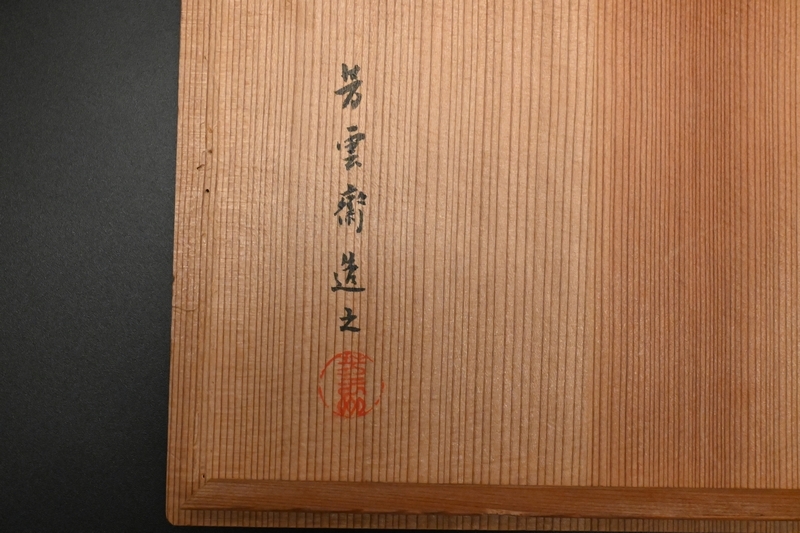 芳雲齋造之